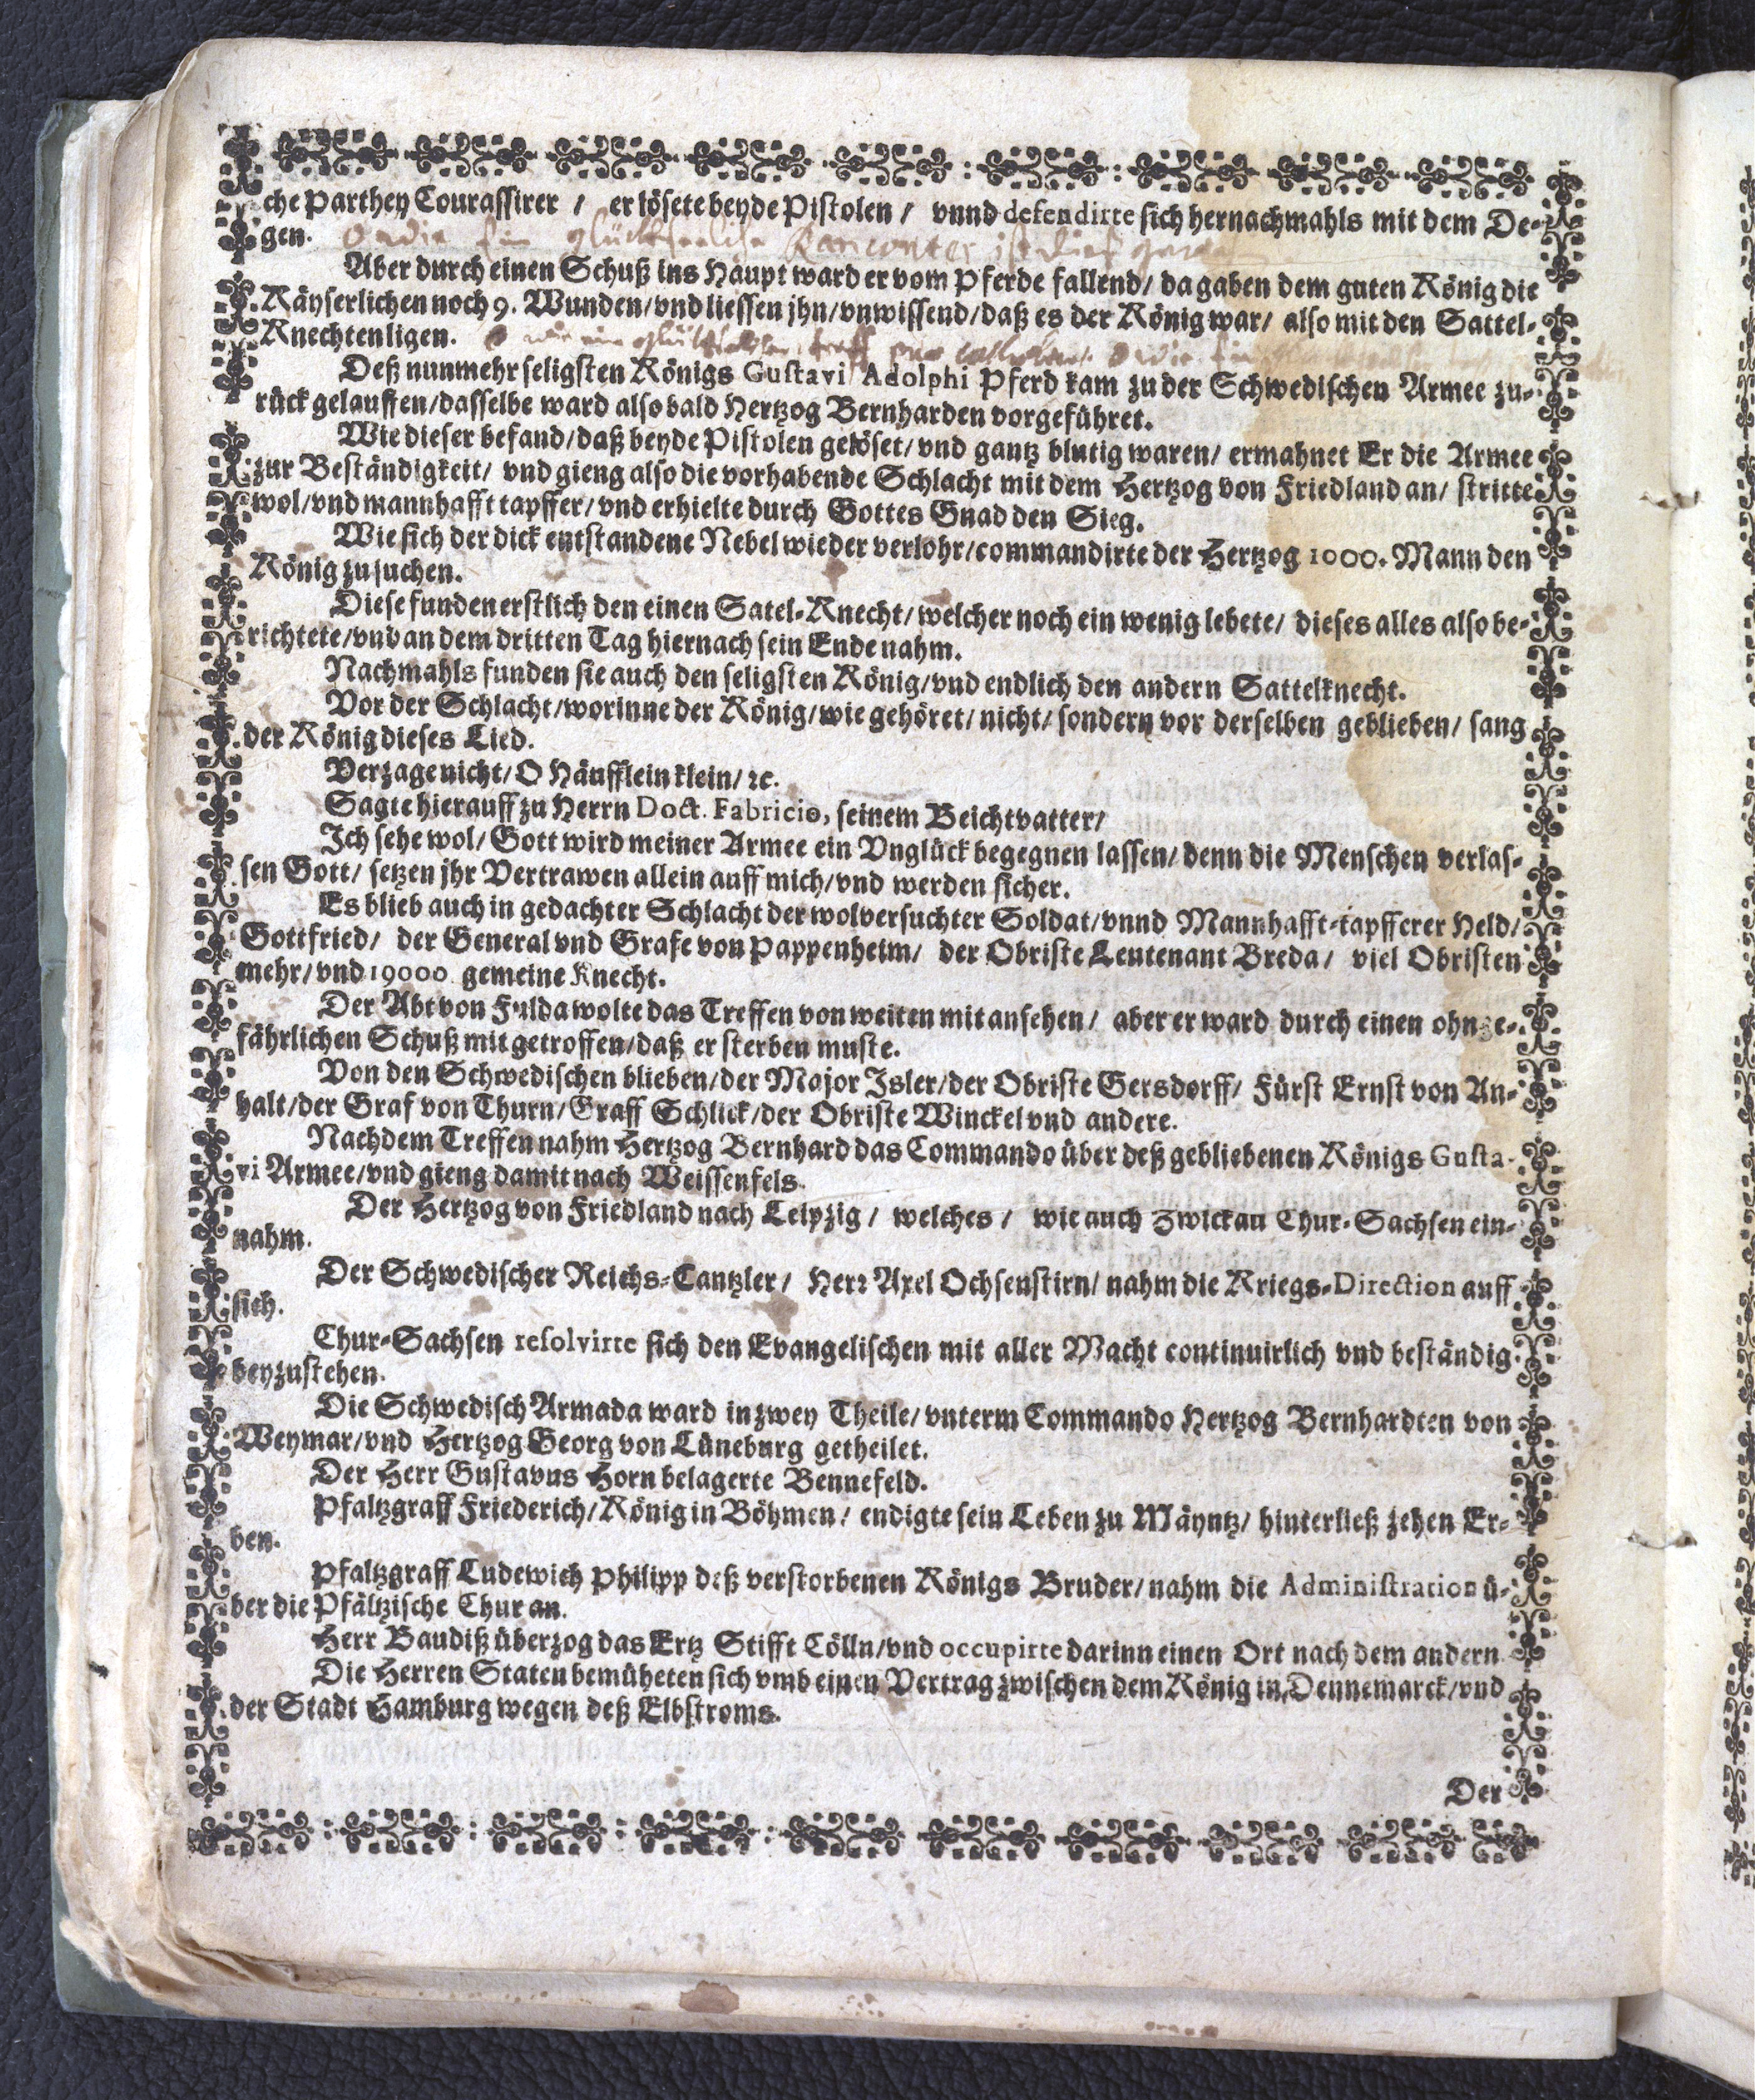 che Parthey Courassirer / er lösete beyde Pistolen / vnnd defendirte sich hernachmahls mit dem De-
gen. O wie ein glückseelige Rancontre ist dies
Aber durch einen Schuß ins Haupt ward er vom Pferde fallend / da gaben dem guten König die
Käyserlichen noch 9. Wunden / vnd liessen jhn / vnwissend / daß es der König war / also mit den Sattel-
Knechten ligen. O wie ein
Deß nunmehr seligsten Königs Gustavi Adolphi Pferd kam zu der Schwedischen Armee zu-
rück gelauffen / dasselbe ward also bald Hertzog Bernharden vorgeführet.
Wie dieser befand / daß beyde Pistolen gelöset / vnd gantz blutig waren / ermahnet Er die Armee
zur Beständigkeit / vnd gieng also die vorhabende Schlacht mit dem Hertzog von Friedland an / stritte
wol / vnd mannhafft tapffer / vnd erhielte durch Gottes Gnad den Sieg.
Wie sich der dick entstandene Nebel wieder verlohr / commandirte der Hertzog 1000. Mann den
König zu suchen.
Diese funden erstlich den einen Satel-Knecht / welcher noch ein wenig lebete / dieses alles also be-
richtete / vnd an dem dritten Tag hiernach sein Ende nahm.
Nachmahls funden sie auch den seligsten König / vnd endlich den andern Sattelknecht.
Vor der Schlacht / worinne der König / wie gehöret / nicht / sondern vor derselben geblieben / sang
der König dieses Lied.
Verzage nicht / O Häufflein klein / ꝛc.
Sagte hierauff zu Herrn Doct. Fabricio, seinem Beichtvatter /
Ich sehe wol / Gott wird meiner Armee ein Vnglück begegnen lassen / denn die Menschen verlas-
sen Gott / setzen jhr Vertrawen allein auff mich / vnd werden sicher.
Es blieb auch in gedachter Schlacht der wolversuchter Soldat / vnnd Mannhafft-tapfferer Held /
Gottfried / der General vnd Grafe von Pappenheim / der Obriste Leutenant Breda / viel Obristen
mehr / vnd 19000 gemeine Knecht.
Der Abt von Fulda wolte das Treffen von weiten mit ansehen / aber er ward durch einen ohnge-
fährlichen Schuß mit getroffen / daß er sterben muste.
Von den Schwedischen blieben / der Major Isler / der Obriste Gersdorff / Fürst Ernst von An-
halt / der Graf von Thurn / Graff Schlick / der Obriste Winckel vnd andere.
Nach dem Treffen nahm Hertzog Bernhard das Commando über deß gebliebenen Königs Gusta-
vi Armee / vnd gieng damit nach Weissenfels.
Der Hertzog von Friedland nach Leipzig / welches / wie auch Zwickau Chur-Sachsen ein-
nahm.
Der Schwedischer Reichs-Cantzler / Herr Axel Ochsenstirn / nahm die Kriegs-Direction auff
sich.
Chur-Sachsen resolvirte sich den Evangelischen mit aller Macht continuirlich vnd beständig
beyzustehen.
Die Schwedisch Armada ward in zwey Theile / vnterm Commando Hertzog Bernhardten von
Weymar / vnd Hertzog Georg von Lüneburg getheilet.
Der Herr Gustavus Horn belagerte Bennefeld.
Pfaltzgraff Friederich / König in Böhmen / endigte sein Leben zu Mäyntz / hinterließ zehen Er-
ben.
Pfaltzgraff Ludewich Philipp deß verstorbenen Königs Bruder / nahm die Administration ü-
ber die Pfältzische Chur an.
Herr Baudiß überzog das Ertz Stifft Cölln / vnd occupirte darinn einen Ort nach dem andern.
Die Herren Staten bemüheten sich vmb einen Vertrag zwischen dem König in Dennemarck / vnd
der Stadt Hamburg wegen deß Elbstroms.
Der